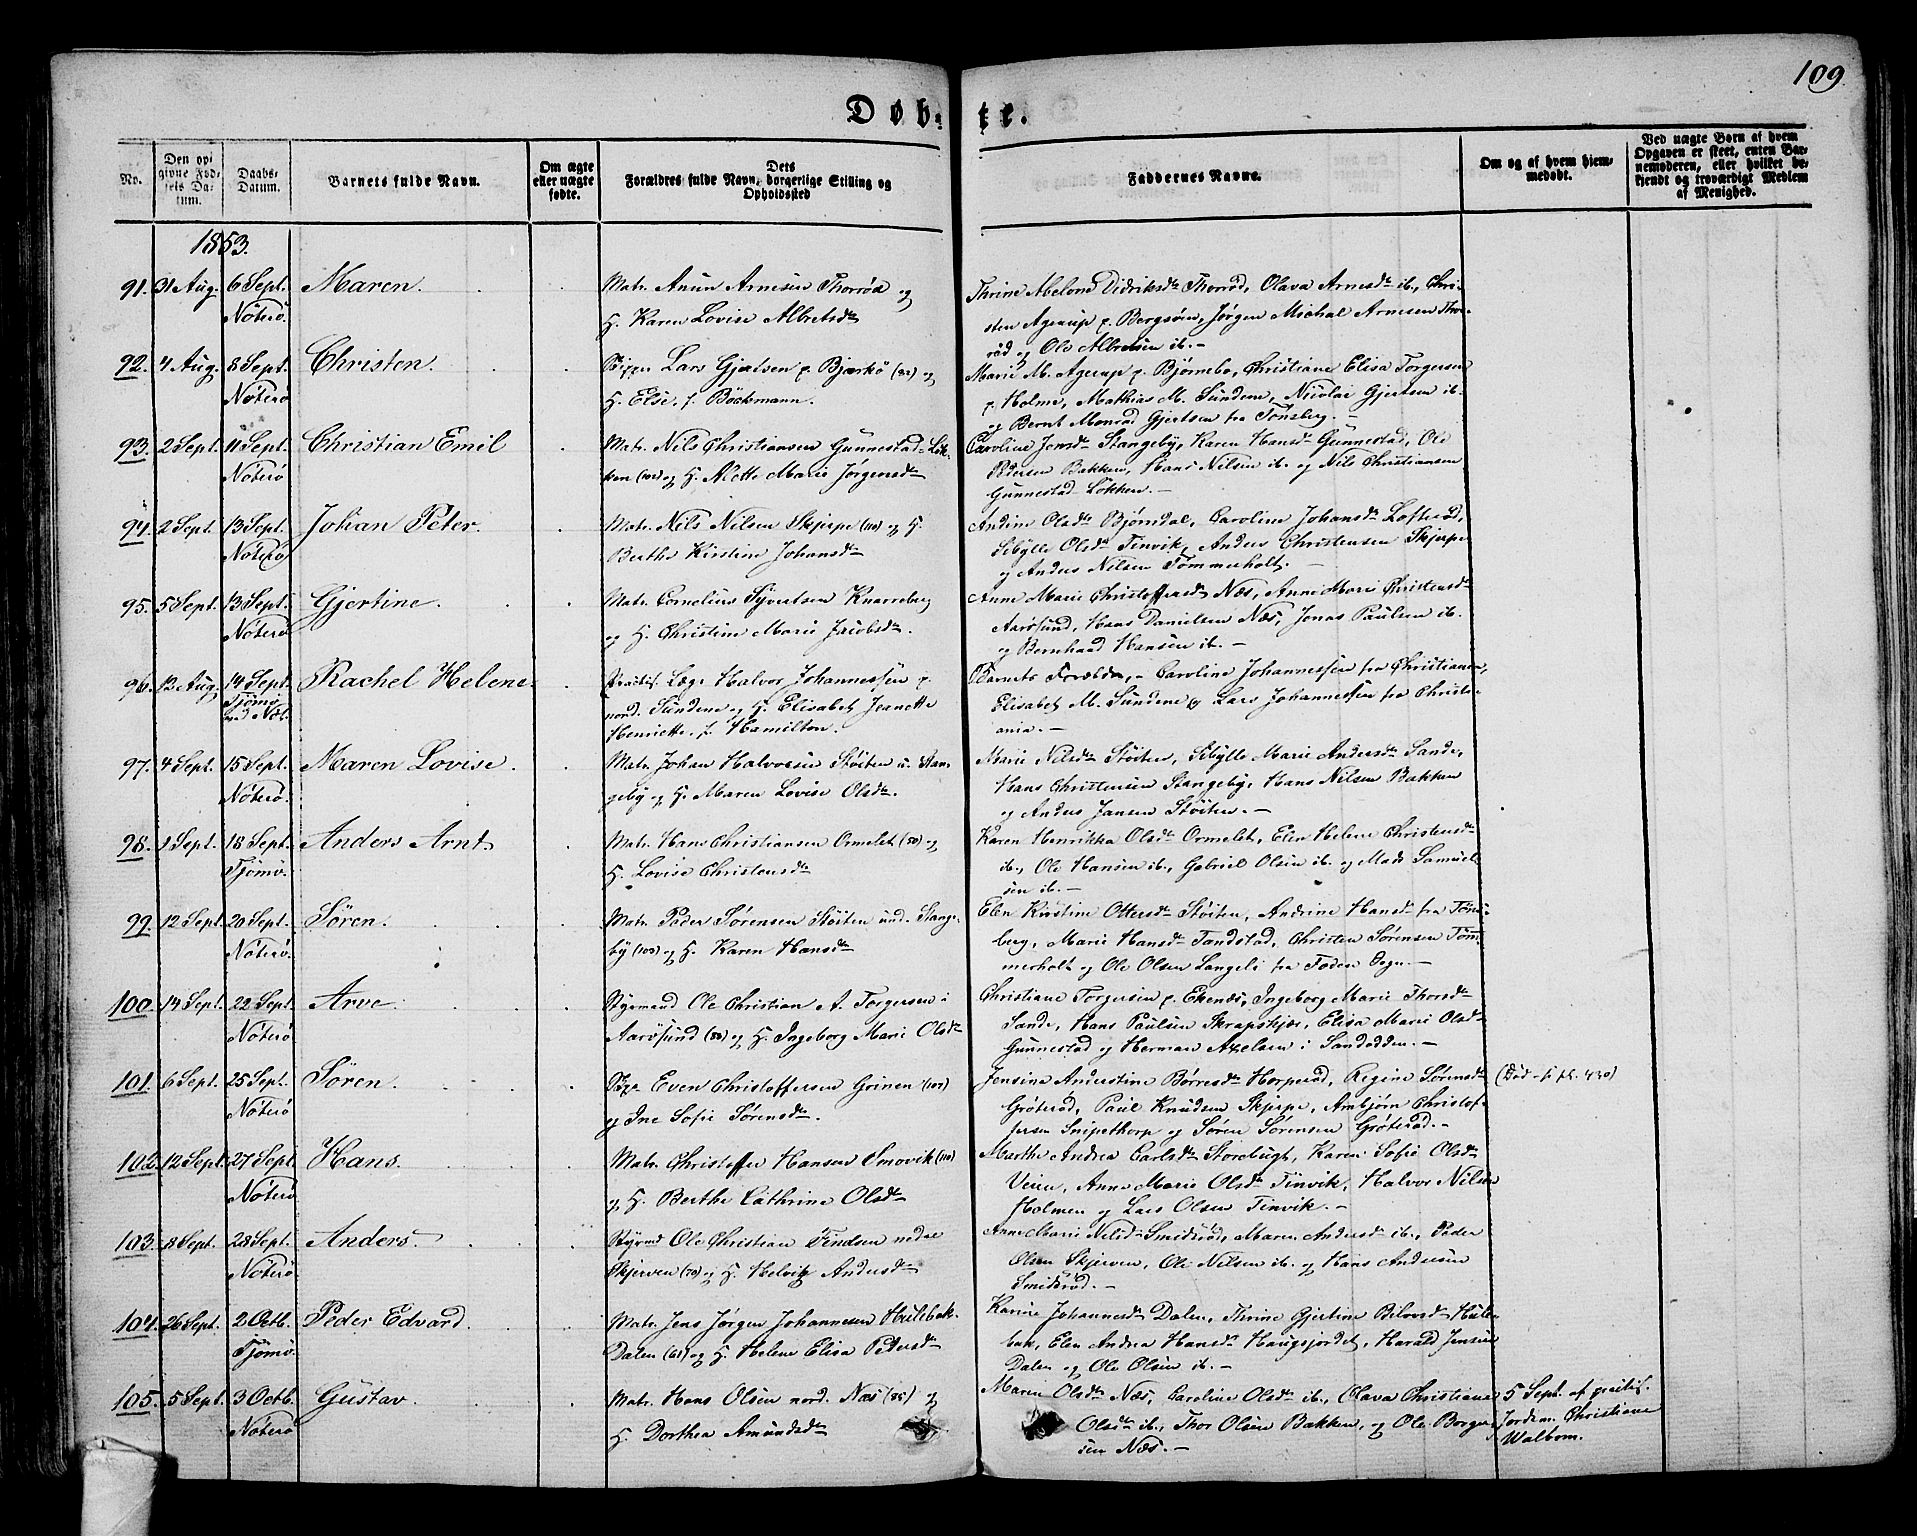 109.
Døb-te.
No.
Den opgivne Fødsels Datum.
Daabs-Datum.
Barnets fulde Navn.
Om ægte eller uægte fødte.
Dets Forældres fulde Navn, borgerlige Stilling og Opholdssted
Faddernes Navne.
Om og af hvem hjemmedøbt.
Ved uægte Børn af hvem Opgaven er skeet, enten Barnemoderen, eller hvilket bekjendt og troværdigt Medlem af Menighed.
1853.
91. 31 Aug. 6 Sept. Nöterö. Maren.
Matr. Anun Arnesen Thorröd og
H. Karen Lovise Albretsdtr
Thrine Abelone Didriksdtr Thorröd, Olava Arnesdtr ib., Chri-
sten Agerup p. Bergsöen, Jørgen Michal Arnesen Thor-
röd og Ole Albretsen ib.-
92. 4 Aug. 8 Sept. Nöterö Christen.
Skipper Lars Gjertsen p. Bjerkö (82) og
H. Else f. Böckmann.
Marie M. Agerup p. Björnebo, Christiane Elisa Torgersen
p. Holme, Mathias M. Sundene, Nicolai Gjertsen ib.
og Bernt Monrad Gjertsen fra Tönsberg.-
93. 2 Sept. 11 Sept. Nöterö Christian Emil
Matr. Nils Christiansen Gunnestad-Lök-
ken (102) og H. Mette Marie Jörgensdtr
Caroline Jonsdtr Stangeby, Karen Hansdtr Gunnestad, Ole
Pedersen Bakken, Hans Nilsen ib. og Nils Christiansen
Gunnestad-Lökken.-
94. 2 Sept. 13 Sept. Nöterö Johan Peter.
Matr. Nils Nilsen Skjerpe (110) og H.
Berthe Kirstine Johansdtr
Andine Olsdtr Bjørndal, Caroline Johansdtr Lofteröd,
Sibylle Olsdtr Tinvik, Anders Christensen Skjerpe
og Anders Nilsen Tömmerholt.-
95. 5 Sept. 13 Sept. Nöterö Gjertine.
Matr. Cornelius Syvertsen Knarreberg
og H. Christine Marie Jacobsdtr.
Anne Marie Christoffersdtr Næs, Anne Marie Christensdtr
Aarösund, Hans Danielsen Næs, Jonas Paulsen ib.
og Bernhard Hansen ib.-
96. 12 Aug. 14 Sept. Tjömö Rachel Helene.
Practis. Læge Halvor Johannessen p.
nord. Sundene og H. Elisabet Jeanette
Henriette f. Hamilton.
Barnets Forældre,- Caroline Johannessen fra Christiania,
Elisabet M. Sundene og Lars Johannessen fra Christi-
ania.-
97. 4 Sept. 15 Sept. Nöterö. Maren Lovise.
Matr. Johan Halvorsen Stöiten u. Stan-
geby og H. Maren Lovise Olsdtr.
Marie Nilsdtr Stöiten, Sibylle Marie Andersdtr Sande,
Hans Christensen Stangeby, Hans Nilsen Bakken
og Anders Jansen Stöiten.-
98. 1 Sept. 18 Sept. Tjömö. Anders Arnt.
Matr. Hans Christiansen Ormelet (50) og
H. Lovise Christensdtr
Karen Henrikka Olsdtr Ormelet, Elen Helene Christensdtr
ib., Ole Hansen ib., Gabriel Olsen ib. og Mads Samuel-
sen ib.-
99. 12 Sept. 20 Sept. Nöterö. Sören.
Matr. Peder Sörensen Stöiten und. Stange-
by (103) og H. Karen Hansdtr
Elen Kirstine Ottersdtr Stöiten, Andrine Hansdtr fra Töns-
berg, Marie Hansdtr Tandstad, Christen Sörensen Töm-
merholt og Ole Olsen Langeli fra Sogn.-
100. 14 Sept. 22 Sept. Nöterö Arve.
Styrmand Ole Christian A. Torgersen i
Aarösund (88) og H. Ingeborg Marie Olsdtr
Christiane Torgersen p. Ekenæs, Ingeborg Marie Thorsdtr
Sande, Hans Paulsen Skrapskjær, Elisa Marie Olsdtr
Gunnestad og Herman Axelsen i Sandodden.-
101. 6 Sept. 25 Sept. Nöterö Sören.
Skpr Even Christoffersen Grinen (107)
og Ine Sofie Sörensdtr.
Jensine Anderstine Börresdtr Horperöd, Regine Sörensdtr
Gröteröd, Paul Knudsen Skjerpe, Ambjörn Christof-
fersen Snipethorp og Sören Sörensen Gröteröd.-
(Död - f. fl. 430)
102. 12 Sept. 27 Sept. Nöterö Hans.
Matr. Christoffer Hansen Smovik (110)
og H. Berthe Cathrine Olsdtr
Marthe Andrea Carlsdtr Storebugt, Karen Sofie Olsdtr
Veien, Anne Marie Olsdtr Tinvik, Halvor Nilsen
Holmen og Lars Olsen Tinvik.-
103. 8 Sept. 28 Sept. Nöterö Anders.
Styrmd Ole Christian Findsen nedre
Skjerven (70) og H. Helvig Andersdtr
Anne Marie Nilsd Smidsröd, Maren Andersdtr ib., Peder
Olsen Skjerven, Ole Nilsen ib. og Hans Andersen
Smidsröd.-
104. 26 Sept. 2 Octb. Tjömö. Peder Edvard.
Matr. Jens Jörgen Johannesen Hulebak-
Dalen (61) og H. Helene Elisa Petersdtr
Karine Johannesdtr Dalen, Thrine Gjertine Hule-
bak, Elen Andrea Hansdtr Haugsjordet, Harald Jensen
Dalen og Ole Olsen ib.-
105. 5 Sept. 3 Octb. Nöterö Gustav.
Matr. Hans Olsen nord. Næs (85) og
H. Dorthea Amundsdtr
Maren Olsdtr Næs, Caroline Olsdtr ib., Olava Christiane
Olsdtr ib., Thor Olsen Bakken, og Ole Borger-
sen Næs.-
5 Sept. af practis.
Jordem. Christiane
Walbom.